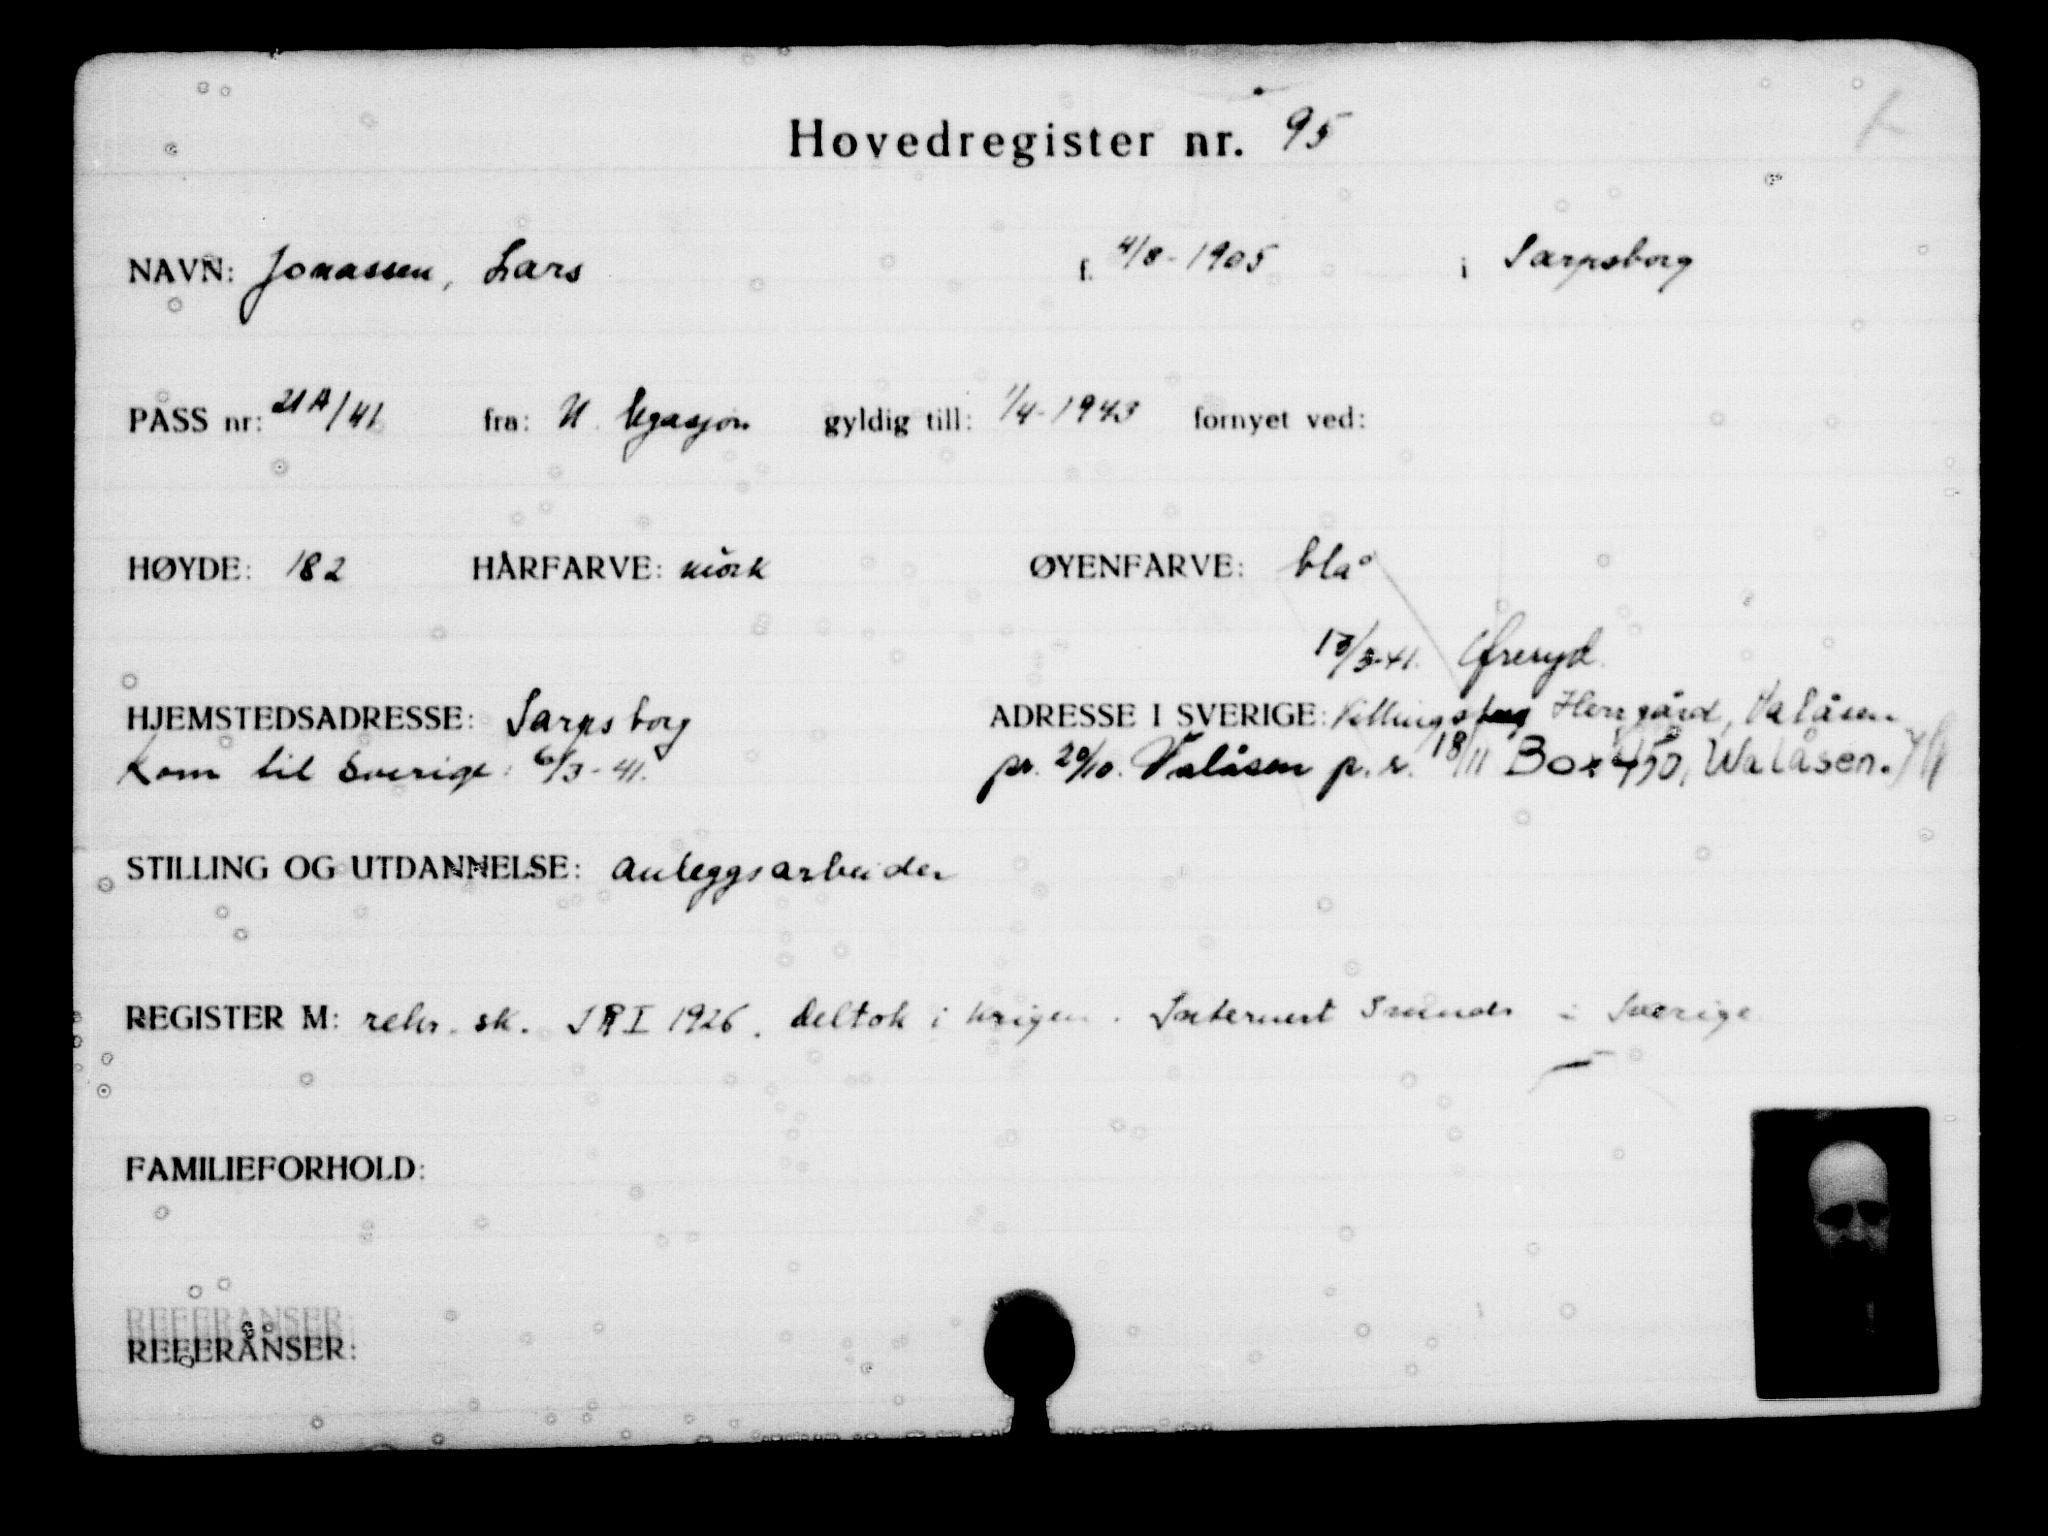 Hovedregister nr. 95
NAVN: Jonassen, Lars f. 4/8-1905 i Sarpsborg
PASS nr: 21A/41 fra: N. legasjon gyldig till: 1/4-1943 fornyet ved:
HØYDE: 182 HÅRFARVE: mörk ØYENFARVE: blå
13/3-41. Öreryd.
HJEMSTEDSADRESSE: Sarpsborg ADRESSE I SVERIGE: Herrgård, Valåsen
Kom til Sverige: 6/3-41. pr. 20/10. Valåsen p.r. 18/11 Box 450, Walåsen.
STILLING OG UTDANNELSE: anleggsarbeider
REGISTER M: rekr. sk. I R I 1926. deltok i krigen. Internert 3 mnder i Sverige
FAMILIEFORHOLD:
REFERANSER:
REFERANSER: